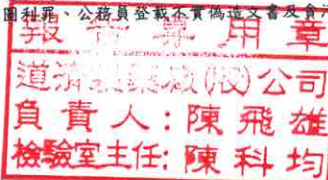 圖利罪、公務員登載不實偽造文書及貪
報告專用章
道濟製藥廠(股)公司
負責人:陳飛雄
檢驗室主任:陳科均